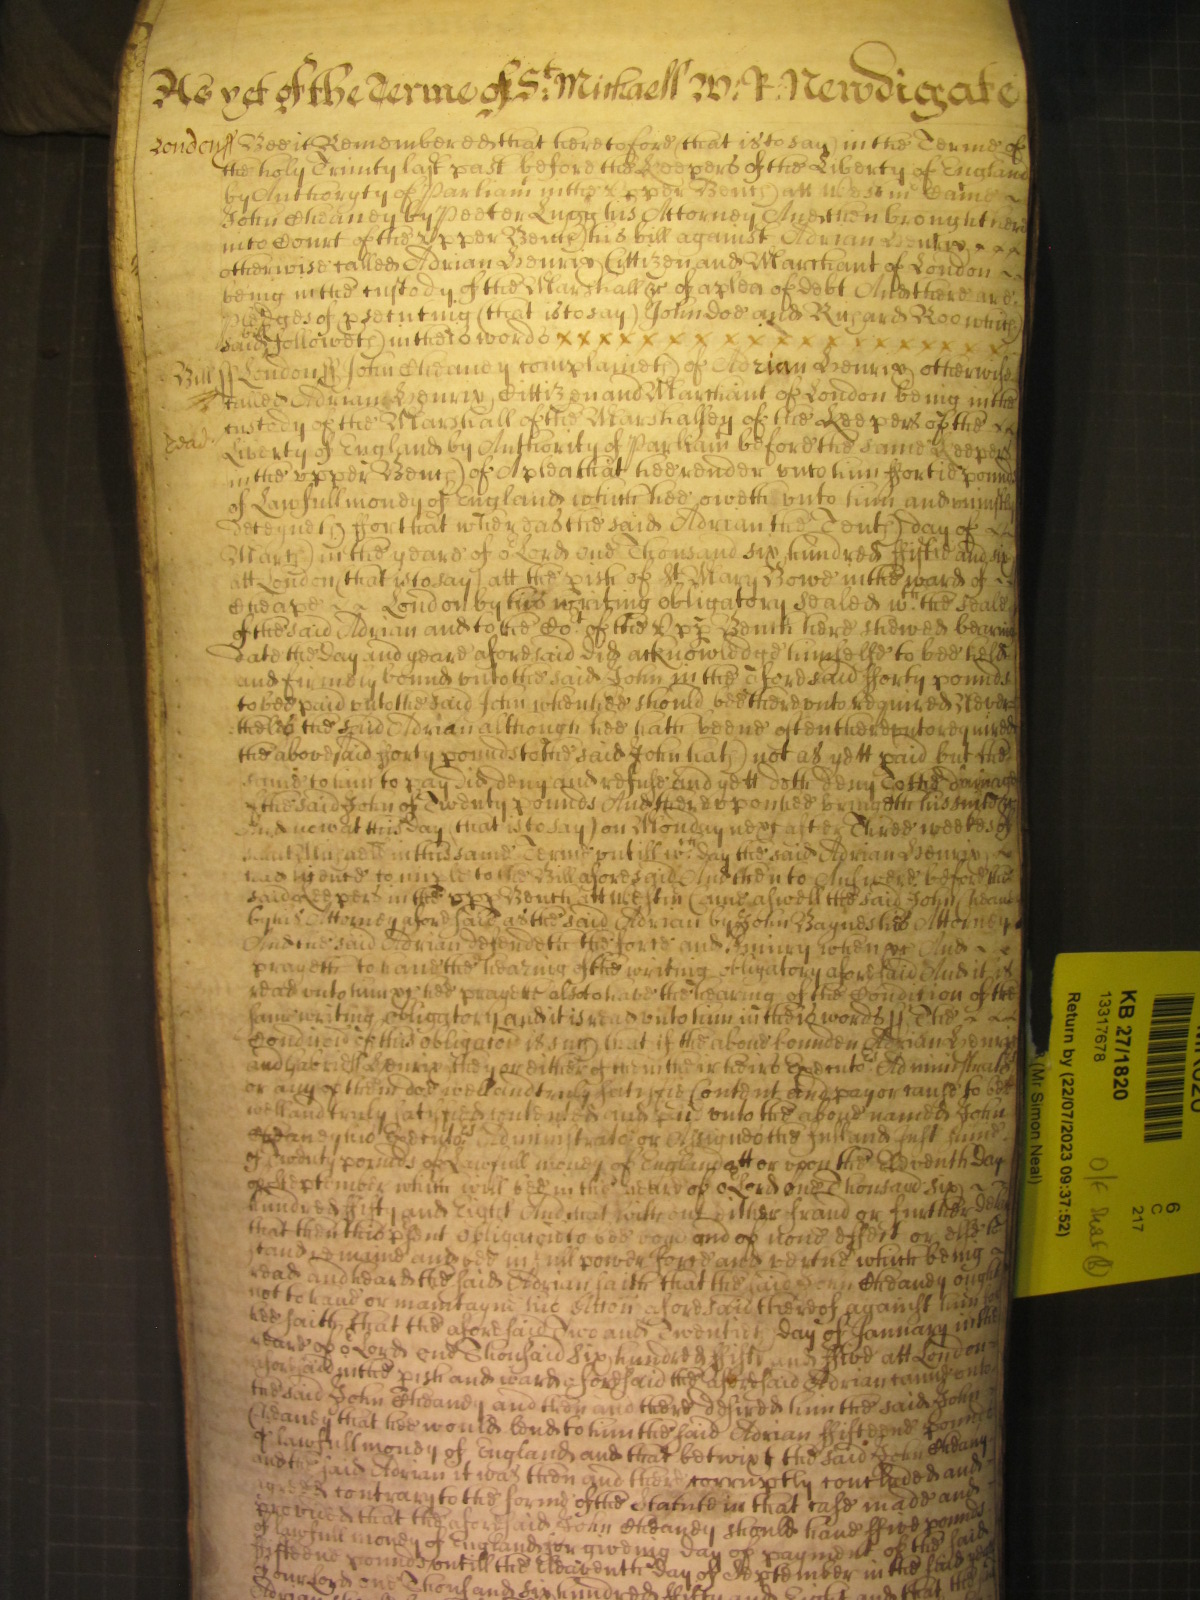 As yet of the Terme of St. Michaell W: R: Newdigate
London ss Bee it Remembered that heretofore (that is to say) in the Terme of
the holy Trinity last past before the Keepers of the Liberty of England
by Authority of Parliam in the Upper Bench att Westm Came
John Cheaney by Peeter Lugg his Attorney And then brought here
into Court of the Upper Bench his bill against Adrian Henrix
otherwise called Adrian Henrix Cittizen and Marchant of London
being in the custody of the Marshall &c of a plea of debt And there are
pledges of psecuting (that is to say) John Doe and Richard Roo which
said bill followeth in these words x x x x x x x x x x x x x x x x x x
Bill ss London ss John Cheaney complaineth of Adrian Henrix otherwise
called Adrian Henrix Cittizen and Marchant of London being in the
custody of the Marshall of the Marshalsey of the Keepers of the
Liberty of England by Authority of Parliam before the same Keepers
in the upper Bench of A plea that hee render unto him ffortie pounds
of Lawfull money of England which hee oweth unto him and uniustly
deteyneth ffor that whereas the said Adrian the Tenth day of
March in the yeare of or Lord one Thousand six hundred ffiftie and six
att London (that is to say) att the pish of St Mary Bowe in the ward of
Cheape London by his writing obligatory sealed wth the seale
of the said Adrian and to the Cot of the Upp Bench here shewed bearing
date the day and yeare aforesaid did acknowledge himselfe to bee held
and firmely bound unto the said John in the aforesaid fforty pounds
to bee paid unto the said John when hee should bee thereunto required Never
theles the said Adrian although hee hath beene often thereunto required
the abovesaid fforty pounds to the said John hath not as yett paid but the
same to him to pay did deny and refuse and yett doth deny To the damage
of the said John of Twenty pounds And thereupon hee bringeth his suite &c
And now at this day (that is to say) on Monday next after Three weekes of
saint Michaell in this same Terme untill wch day the said Adrian Henrix
had licence to imple to the Bill aforesaid And then to Answere before the
said Keepers in the upp Bench att Westm Came aswell the said John Cheaney
by his Attorney aforesaid as the said Adrian by John Baynes his Attorney
And the said Adrian defendeth the force and Iniury when &c And
prayeth to have the hearing of the writing obligatory aforesaid And it is
read unto him &c hee prayeth also to have the hearing of the Condition of the
same writing obligatory and it is read unto him in these words ss The
Condicion of this obligacion is such that if the above bounden Adrian Henrix
and Gabriell Henrix they or either of them their heirs Executors Administrators
or any of them doe well and truly satisfie Content and pay or cause to bee
well and truly satisfied contented and paid unto the above named John
Cheaney his Executors Administrators or Assignes the full and just summe
of Twenty pounds of Lawfull money of England att or upon the Eleventh day
of September which will bee in the yeare of or Lord one Thousand six
hundred ffifty and Eight And that without either fraud or further delay
that then this psent obligacion to bee voyd and of none effect or else to
stand remaine and bee in full power force and vertue which being
read and heard the said Adrian saith that the said John Cheaney ought
not to have or maintayne his Action aforesaid thereof against him for
hee saith that the aforesaid Two and Twentieth day of January in the
yeare of or Lord one Thousand six hundred ffifty and ffive att London
aforesaid in the pish and ward aforesaid the aforesaid Adrian came unto
the said John Cheaney and then and there desired him the said John
Cheaney that hee would lend to him the said Adrian ffifteene pounds
of lawfull money of England and that betwixt the said John Cheany
and the said Adrian it was then and there corruptly concluded and
agreed contrary to the forme of the Statute in that case made and
provided that the aforesaid John Cheaney should have ffive pounds
of lawfull money of England for giveing day of payment of the said
ffifteene pounds untill the Eleaventh day of September in the said yeare
of our Lord one Thousand six hundred ffifty and Eight and that the
KB 27/1820
13317678
Return by (22/07/2023 09:37:52)
(Mr Simon Neal)
6
C
217